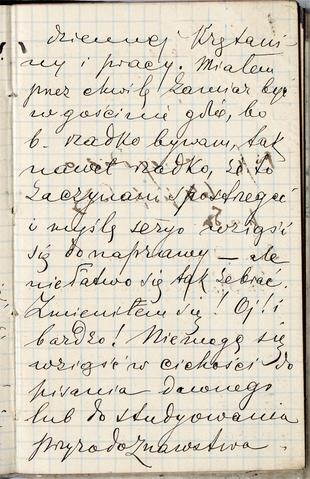 dziennej krzątani
ny i pracy. Miałem
przez chwilę zamiar być
w gościnie gdzie, bo
b. rzadko bywam, tak
nawet rzadko, że to
zaczynam spostrzegać
i myślę seryo wziąść
się do naprawy – ale
niełatwo się tak zebrać.
Zmieniłem się! Oj! i
bardzo! Niemogę się
wziąść w cichości do
pisania dawnego
lub do studyowania
przyrodoznawstwa.